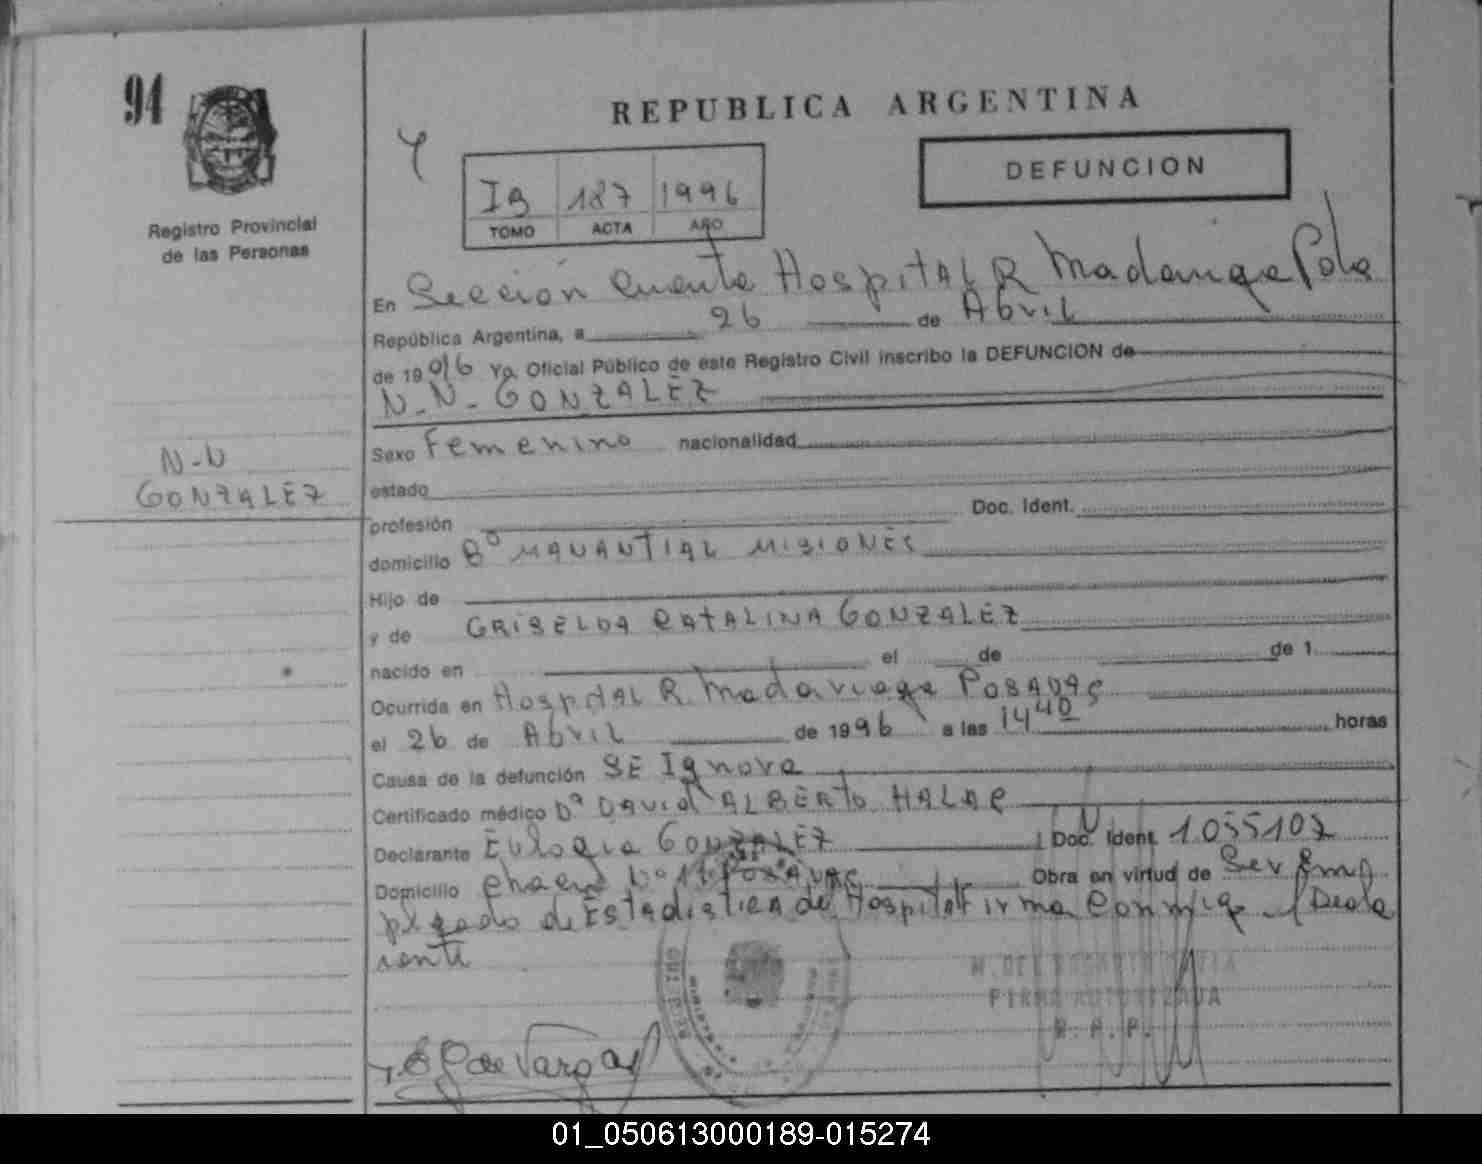 94
Registro Provincial
de las Personas
REPUBLICA ARGENTINA
DEFUNCION
IB 187 1996
TOMO ACTA AÑO
En Sección Cuarta Hospital R Madariaga Pdas
República Argentina, a 26 de Abril
de 1996 Yo Oficial Público de este Registro Civil inscribo la DEFUNCION de
N-N- GONZALEZ
N-N
GONZALEZ
Sexo Femenino nacionalidad
estado
profesión Doc. Ident.
domicilio Bº MANANTIAL MISIONES
Hijo de
y de GRISELDA CATALINA GONZALEZ
nacido en el de de 1
Ocurrida en Hospital R. Madariaga POSADAS
el 26 de Abril de 1996 a las 14 40 horas
Causa de la defunción SE Ignora
Certificado médico Dº DAVID ALBERTO HALAC
Declarante Eulogia GONZALEZ Doc. Ident. 1.055107
Domicilio Chacra Nº POSADAS Obra en virtud de Ser Em
pleado de Estadistica de Hospital Firma Conmigo
rante
FIRMA AUTORIZADA
R. P. P.
de Vargas
01_050613000189-015274